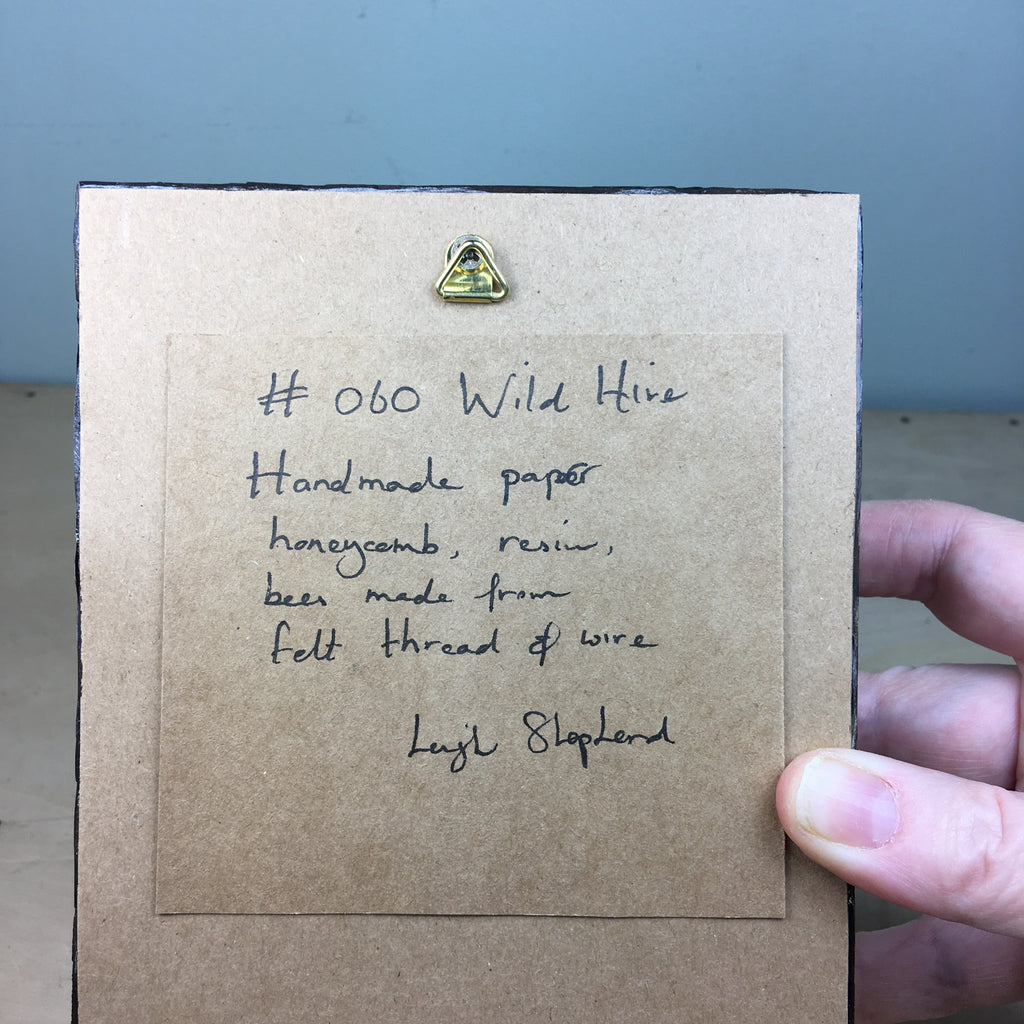 # 060 Wild Hive
Handmade paper
honeycomb, resin,
bees made from
felt thread & wire
Leigh Shepherd